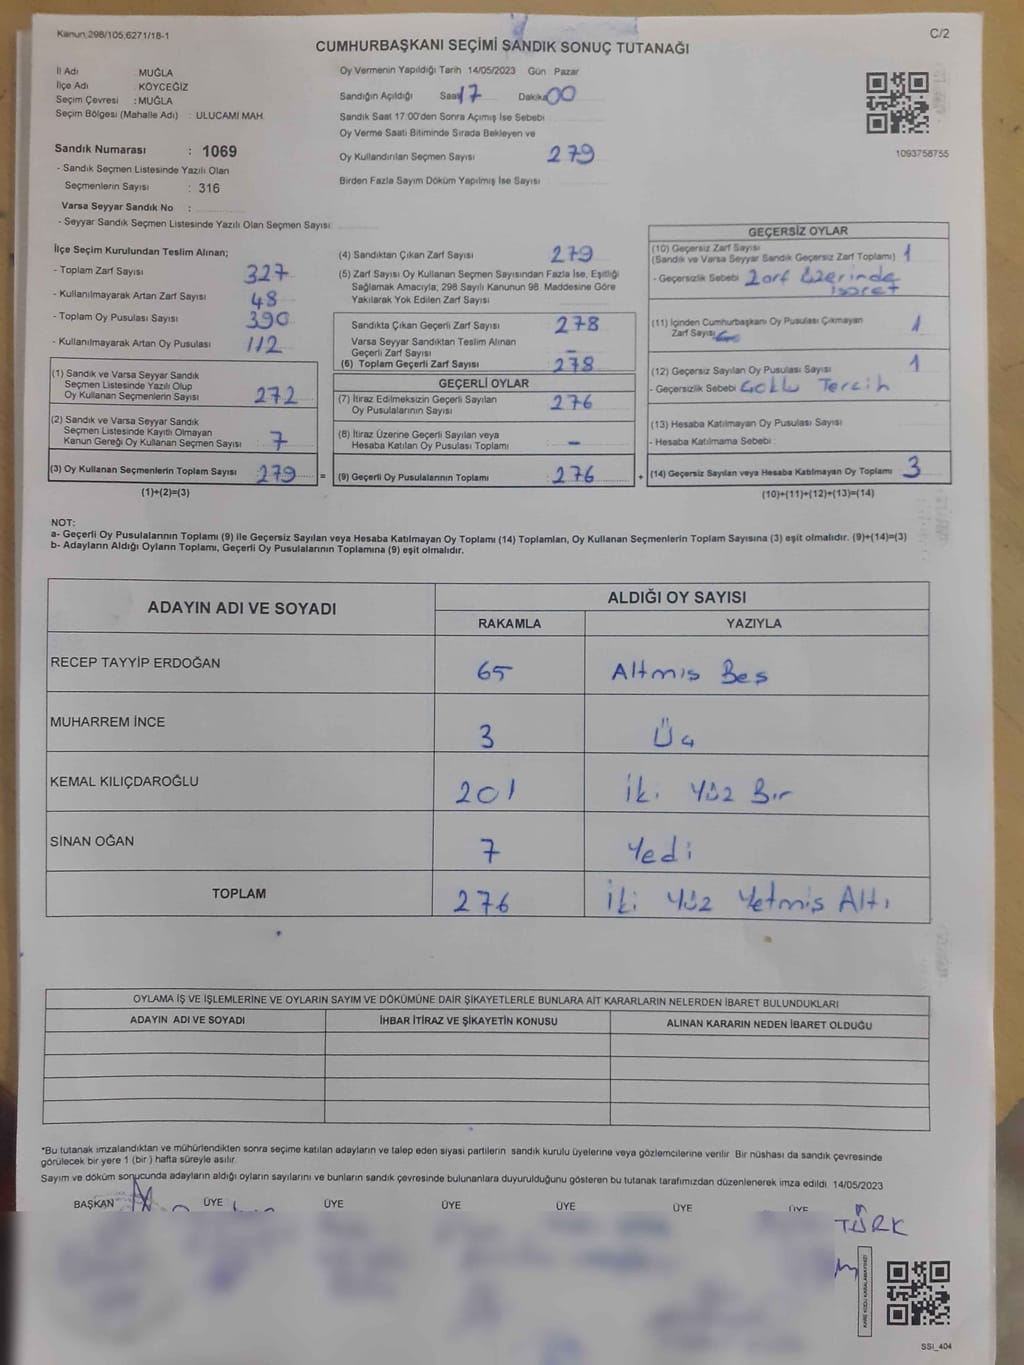 Kanun 298/105,6271/18-1
C/2
CUMHURBAŞKANI SEÇİMİ SANDIK SONUÇ TUTANAĞI
İl Adı MUĞLA
İlçe Adı KÖYCEĞİZ
Seçim Çevresi : MUĞLA
Seçim Bölgesi (Mahalle Adı) : ULUCAMİ MAH.
Sandık Numarası : 1069
- Sandık Seçmen Listesinde Yazılı Olan
Seçmenlerin Sayısı : 316
Varsa Seyyar Sandık No :
- Seyyar Sandık Seçmen Listesinde Yazılı Olan Seçmen Sayısı:
Oy Vermenin Yapıldığı Tarih 14/05/2023 Gün Pazar
Sandığın Açıldığı Saat 17 Dakika 00
Sandık Saat 17:00'den Sonra Açımış İse Sebebi
Oy Verme Saati Bitiminde Sırada Bekleyen ve
Oy Kullandırılan Seçmen Sayısı 279
Birden Fazla Sayım Döküm Yapılmış İse Sayısı
1093758755
İlçe Seçim Kurulundan Teslim Alınan;
- Toplam Zarf Sayısı 327
- Kullanılmayarak Artan Zarf Sayısı 48
- Toplam Oy Pusulası Sayısı 390
- Kullanılmayarak Artan Oy Pusulası 112
(1) Sandık ve Varsa Seyyar Sandık
Seçmen Listesinde Yazılı Olup
Oy Kullanan Seçmenlerin Sayısı 272
(2) Sandık ve Varsa Seyyar Sandık
Seçmen Listesinde Kayıtlı Olmayan
Kanun Gereği Oy Kullanan Seçmen Sayısı : 7
(3) Oy Kullanan Seçmenlerin Toplam Sayısı : 279 =
(1)+(2)=(3)
(4) Sandıktan Çıkan Zarf Sayısı 279
(5) Zarf Sayısı Oy Kullanan Seçmen Sayısından Fazla İse, Eşitliği
Sağlamak Amacıyla; 298 Sayılı Kanunun 98. Maddesine Göre
Yakılarak Yok Edilen Zarf Sayısı
Sandıkta Çıkan Geçerli Zarf Sayısı : 278
Varsa Seyyar Sandıktan Teslim Alınan
Geçerli Zarf Sayısı –
(6) Toplam Geçerli Zarf Sayısı : 278
GEÇERLİ OYLAR
(7) İtiraz Edilmeksizin Geçerli Sayılan
Oy Pusulalarının Sayısı : 276
(8) İtiraz Üzerine Geçerli Sayılan veya
Hesaba Katılan Oy Pusulası Toplamı : –
(9) Geçerli Oy Pusulalarının Toplamı : 276 +
GEÇERSİZ OYLAR
(10) Geçersiz Zarf Sayısı
(Sandık ve Varsa Seyyar Sandık Geçersiz Zarf Toplamı) 1
- Geçersizlik Sebebi Zarf Üzerinde
isaret
(11) İçinden Cumhurbaşkanı Oy Pusulası Çıkmayan
Zarf Sayısı 1
(12) Geçersiz Sayılan Oy Pusulası Sayısı 1
- Geçersizlik Sebebi Coklu Tercih
(13) Hesaba Katılmayan Oy Pusulası Sayısı
- Hesaba Katılmama Sebebi
(14) Geçersiz Sayılan veya Hesaba Katılmayan Oy Toplamı 3
(10)+(11)+(12)+(13)=(14)
NOT:
a- Geçerli Oy Pusulalarının Toplamı (9) ile Geçersiz Sayılan veya Hesaba Katılmayan Oy Toplamı (14) Toplamları, Oy Kullanan Seçmenlerin Toplam Sayısına (3) eşit olmalıdır. (9)+(14)=(3)
b- Adayların Aldığı Oyların Toplamı, Geçerli Oy Pusulalarının Toplamına (9) eşit olmalıdır.
ADAYIN ADI VE SOYADI
ALDIĞI OY SAYISI
RAKAMLA YAZIYLA
RECEP TAYYİP ERDOĞAN 65 Altmıs Bes
MUHARREM İNCE 3 Üç
KEMAL KILIÇDAROĞLU 201 İki Yüz Bir
SİNAN OĞAN 7 Yedi
TOPLAM 276 İki Yüz Yetmis Altı
OYLAMA İŞ VE İŞLEMLERİNE VE OYLARIN SAYIM VE DÖKÜMÜNE DAİR ŞİKAYETLERLE BUNLARA AİT KARARLARIN NELERDEN İBARET BULUNDUKLARI
ADAYIN ADI VE SOYADI İHBAR İTİRAZ VE ŞİKAYETİN KONUSU ALINAN KARARIN NEDEN İBARET OLDUĞU
*Bu tutanak imzalandıktan ve mühürlendikten sonra seçime katılan adayların ve talep eden siyasi partilerin sandık kurulu üyelerine veya gözlemcilerine verilir. Bir nüshası da sandık çevresinde
görülecek bir yere 1 (bir ) hafta süreyle asılır.
Sayım ve döküm sonucunda adayların aldığı oyların sayılarını ve bunların sandık çevresinde bulunanlara duyurulduğunu gösteren bu tutanak tarafımızdan düzenlenerek imza edildi. 14/05/2023
BAŞKAN ÜYE ÜYE ÜYE ÜYE ÜYE ÜYE
TÜRK
KARE KODU KARALAMAYINIZ!
SSİ_404